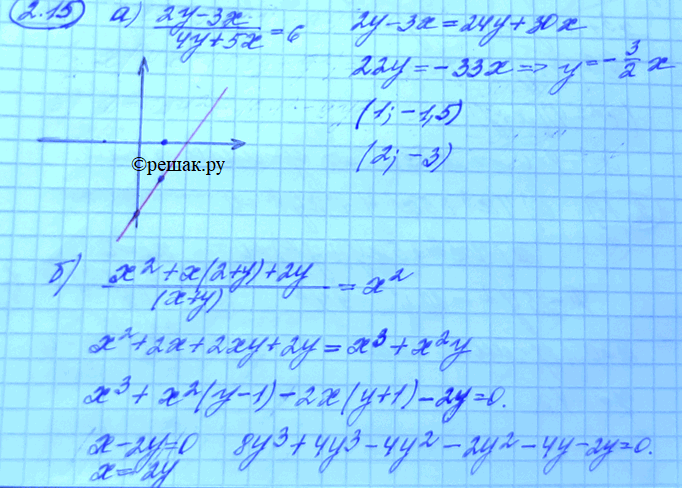 2.15 а) (2y-3x)/(4y+5x)=6 2y-3x=24y+30x
22y=-33x=> y=-3/2 x
(1; -1,5)
(2; -3)
©решак.ру
б) (x²+x(2+y)+2y)/(x+y)=x²
x²+2x+2xy+2y=x³+x²y
x³+x²(y-1)-2x(y+1)-2y=0.
x-2y=0 8y³+4y³-4y²-2y²-4y-2y=0.
x=2y